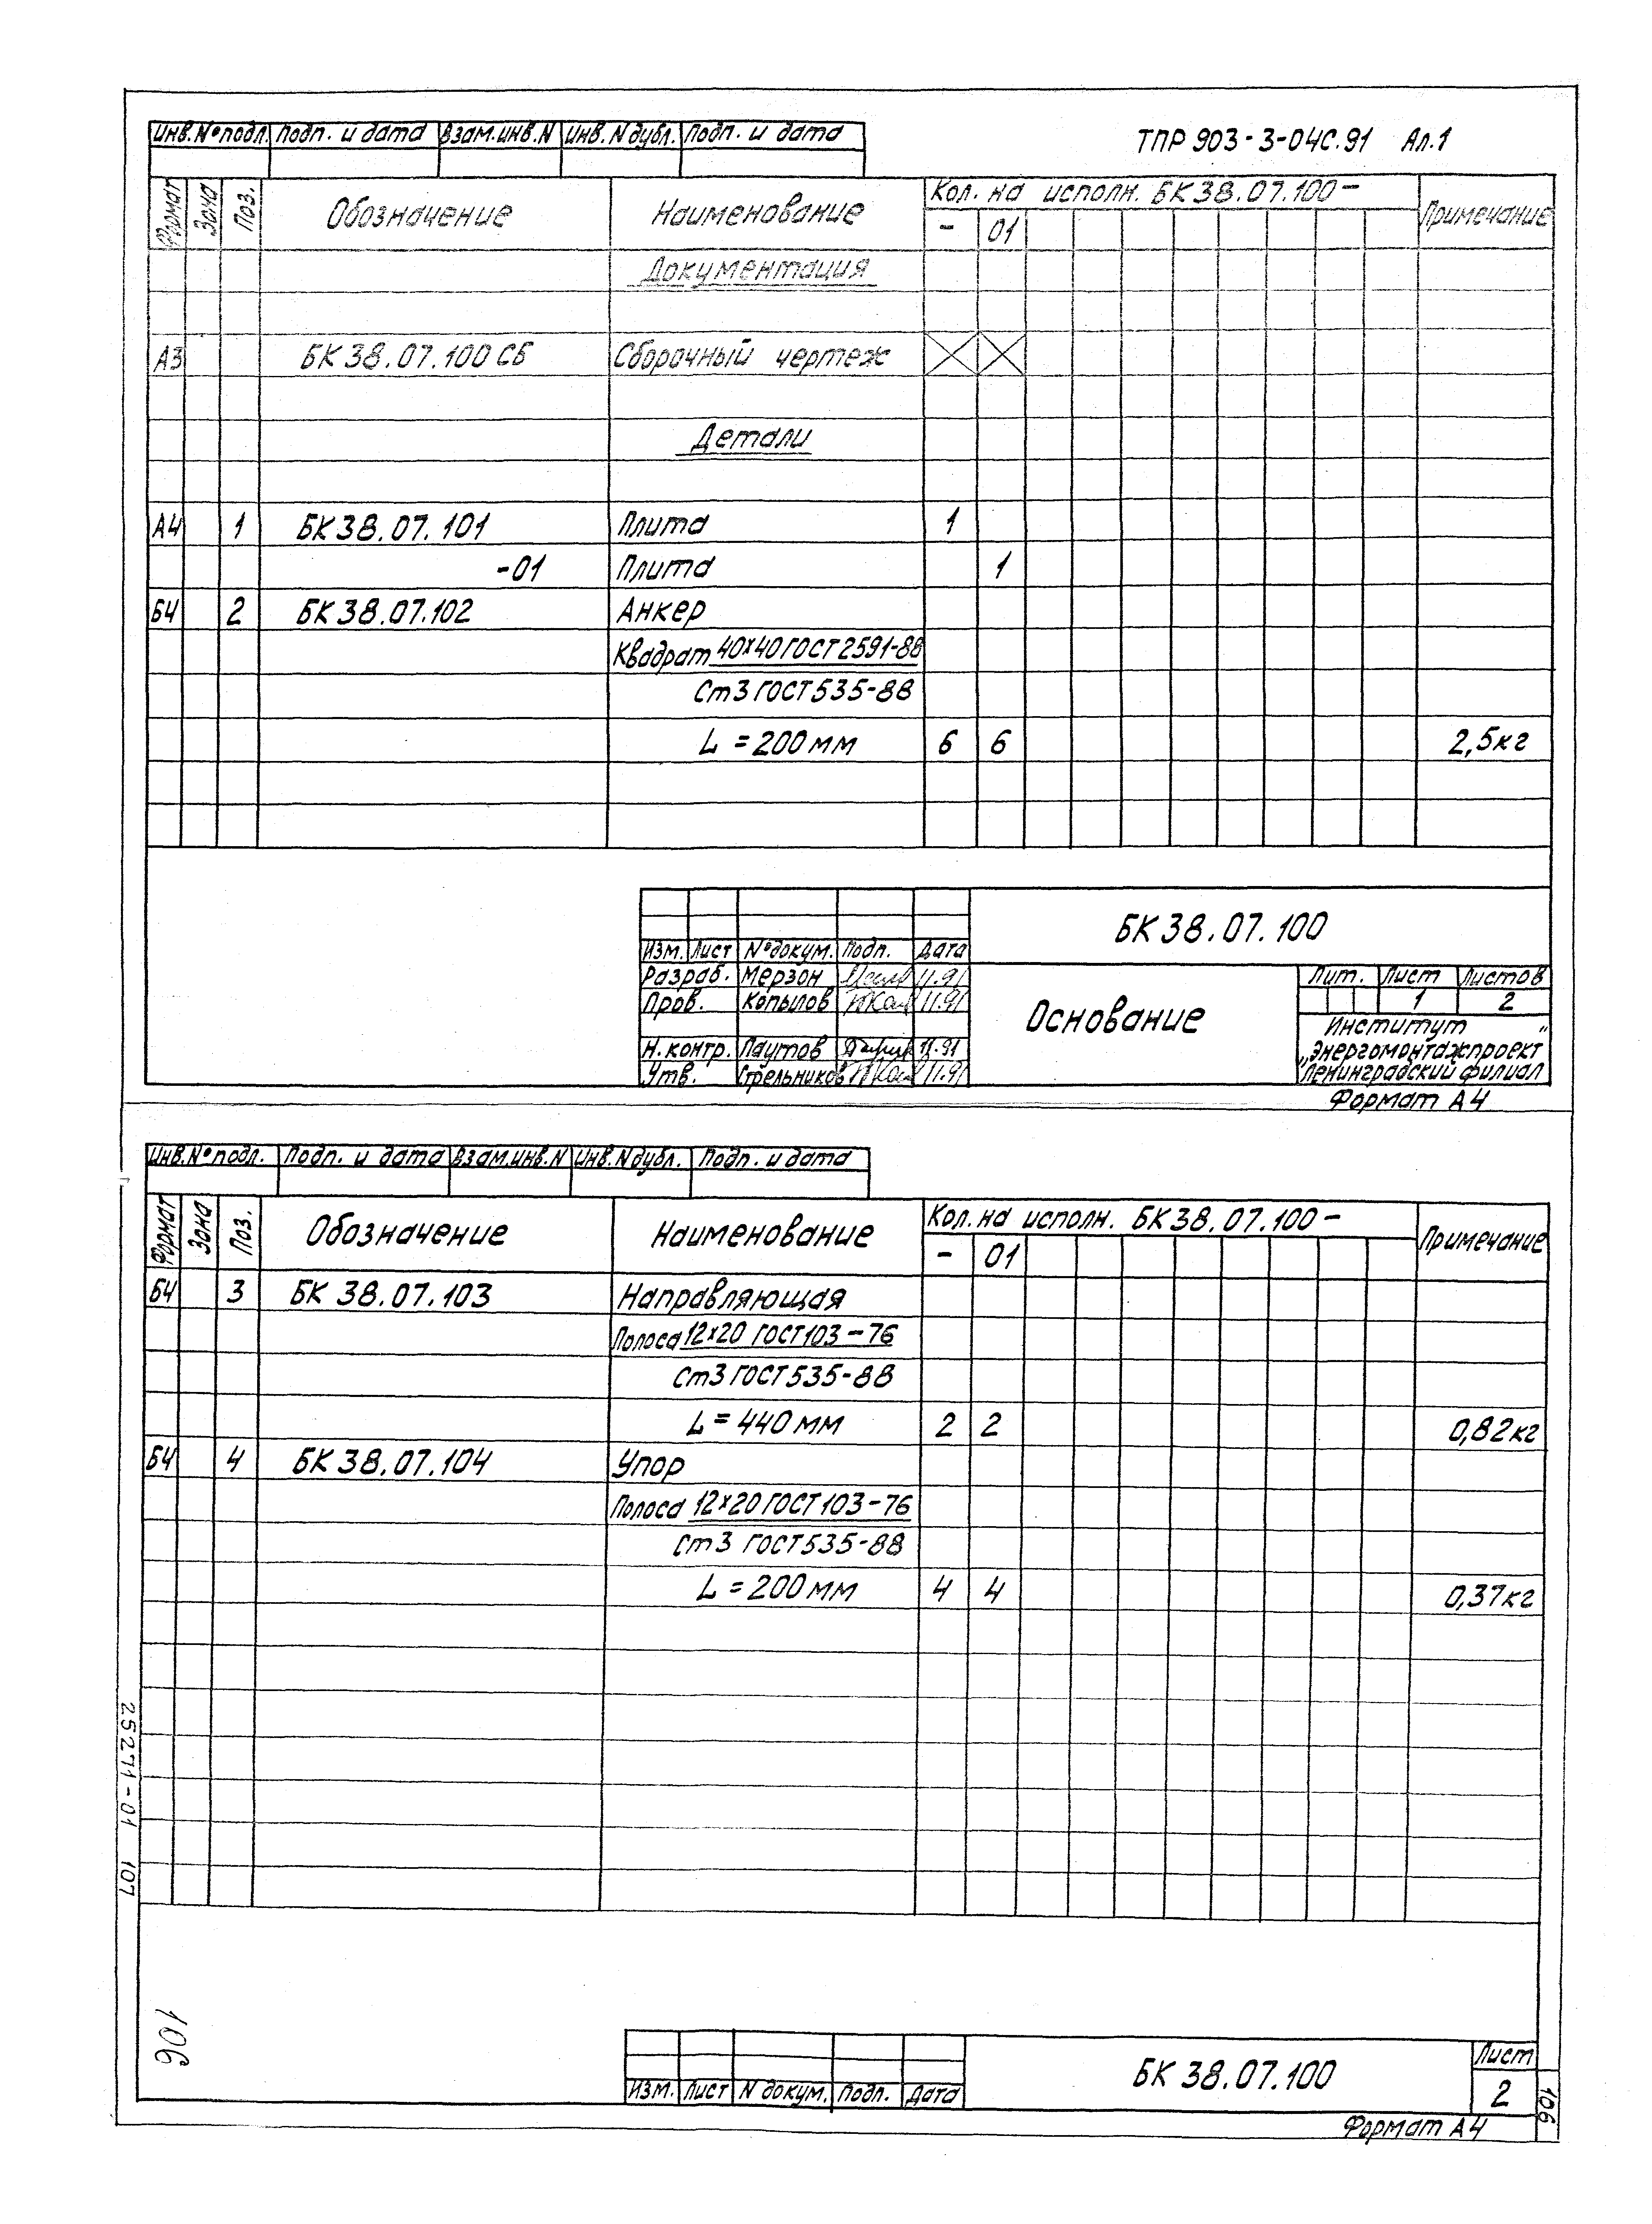 Инв.№подл. Подп. и дата Взам.инв.N Инв.Nдубл. Подп. и дата
ТПР 903-3-04С.91 Ал.1
Формат Зона Поз. Обозначение Наименование Кол. на исполн. БК38.07.100- Примечание
- 01
Документация
А3 БК38.07.100СБ Сборочный чертеж
Детали
А4 1 БК38.07.101 Плита 1
-01 Плита 1
БЧ 2 БК38.07.102 Анкер
Квадрат 40х40 ГОСТ 2591-88
Ст3 ГОСТ 535-88
L = 200 мм 6 6 2,5кг
БК38.07.100
Изм. Лист №докум. Подп. Дата
Разраб. Мерзон 11.91
Пров. Копылов 11.91
Н.контр. Паутов 11.91
Утв. Стрельников 11.91
Основание
Лит. Лист Листов
1 2
Институт "
„Энергомонтажпроект
Ленинградский филиал
Формат А4
Инв.№подл. Подп. и дата Взам.инв.N Инв.Nдубл. Подп. и дата
Формат Зона Поз. Обозначение Наименование Кол. на исполн. БК38.07.100- Примечание
- 01
БЧ 3 БК 38.07.103 Направляющая
Полоса 12х20 ГОСТ 103-76
Ст3 ГОСТ 535-88
L = 440 мм 2 2 0,82кг
БЧ 4 БК38.07.104 Упор
Полоса 12х20 ГОСТ 103-76
Ст3 ГОСТ 535-88
L = 200 мм 4 4 0,37кг
25271-01 107
106
Изм. Лист N докум. Подп. Дата
БК 38.07.100
Лист
2
106
Формат А4